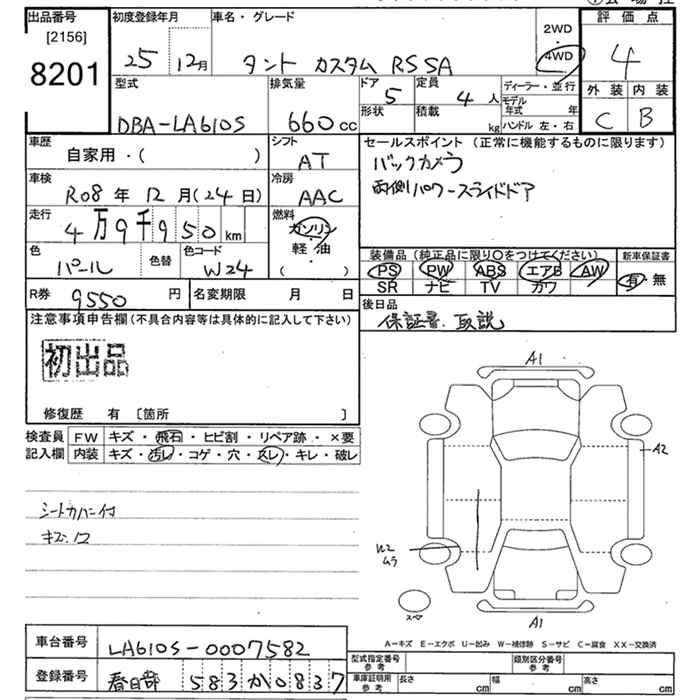 出品番号
[2156]
8201
初度登録年月
25 12月
車名・グレード
タント カスタム RS SA
2WD
・
4WD
評価点
4
外装 内装
C B
型式
DBA-LA610S
排気量
660cc
ドア
5
定員
4 人
形状
積載
kg
ディーラー・並行
モデル年式 年
ハンドル 左・右
車歴
自家用・( )
シフト
AT
車検
R08年12月(24日)
冷房
AAC
走行
4万9千950km
燃料
ガソリン
・
軽・油
( )
色
パール
色替
色コード
W24
R券
9550円
名変期限 月 日
セールスポイント(正常に機能するものに限ります)
バックカメラ
両側パワースライドドア
装備品(純正品に限り○をつけてください)
PS PW ABS エアB AW
SR ナビ TV カワ
新車保証書
有・無
後日品
保証書、取説
注意事項申告欄(不具合内容等は具体的に記入して下さい)
初出品
修復歴 有 [箇所 ]
検査員記入欄
FW キズ・飛石・ヒビ割・リペア跡・×要
内装 キズ・汚レ・コゲ・穴・スレ・キレ・破レ
シートカバー付
キズ・凹
A1
A2
W2
ムラ
スペア
A1
A−キズ E−エクボ U−凹み W−補修跡 S−サビ C−腐食 XX−交換済
車台番号
LA610S-0007582
登録番号
春日部 583か0837
型式指定番号
参考
類別区分番号
参考
車庫証明用
参考
長さ cm
幅 cm
高さ cm